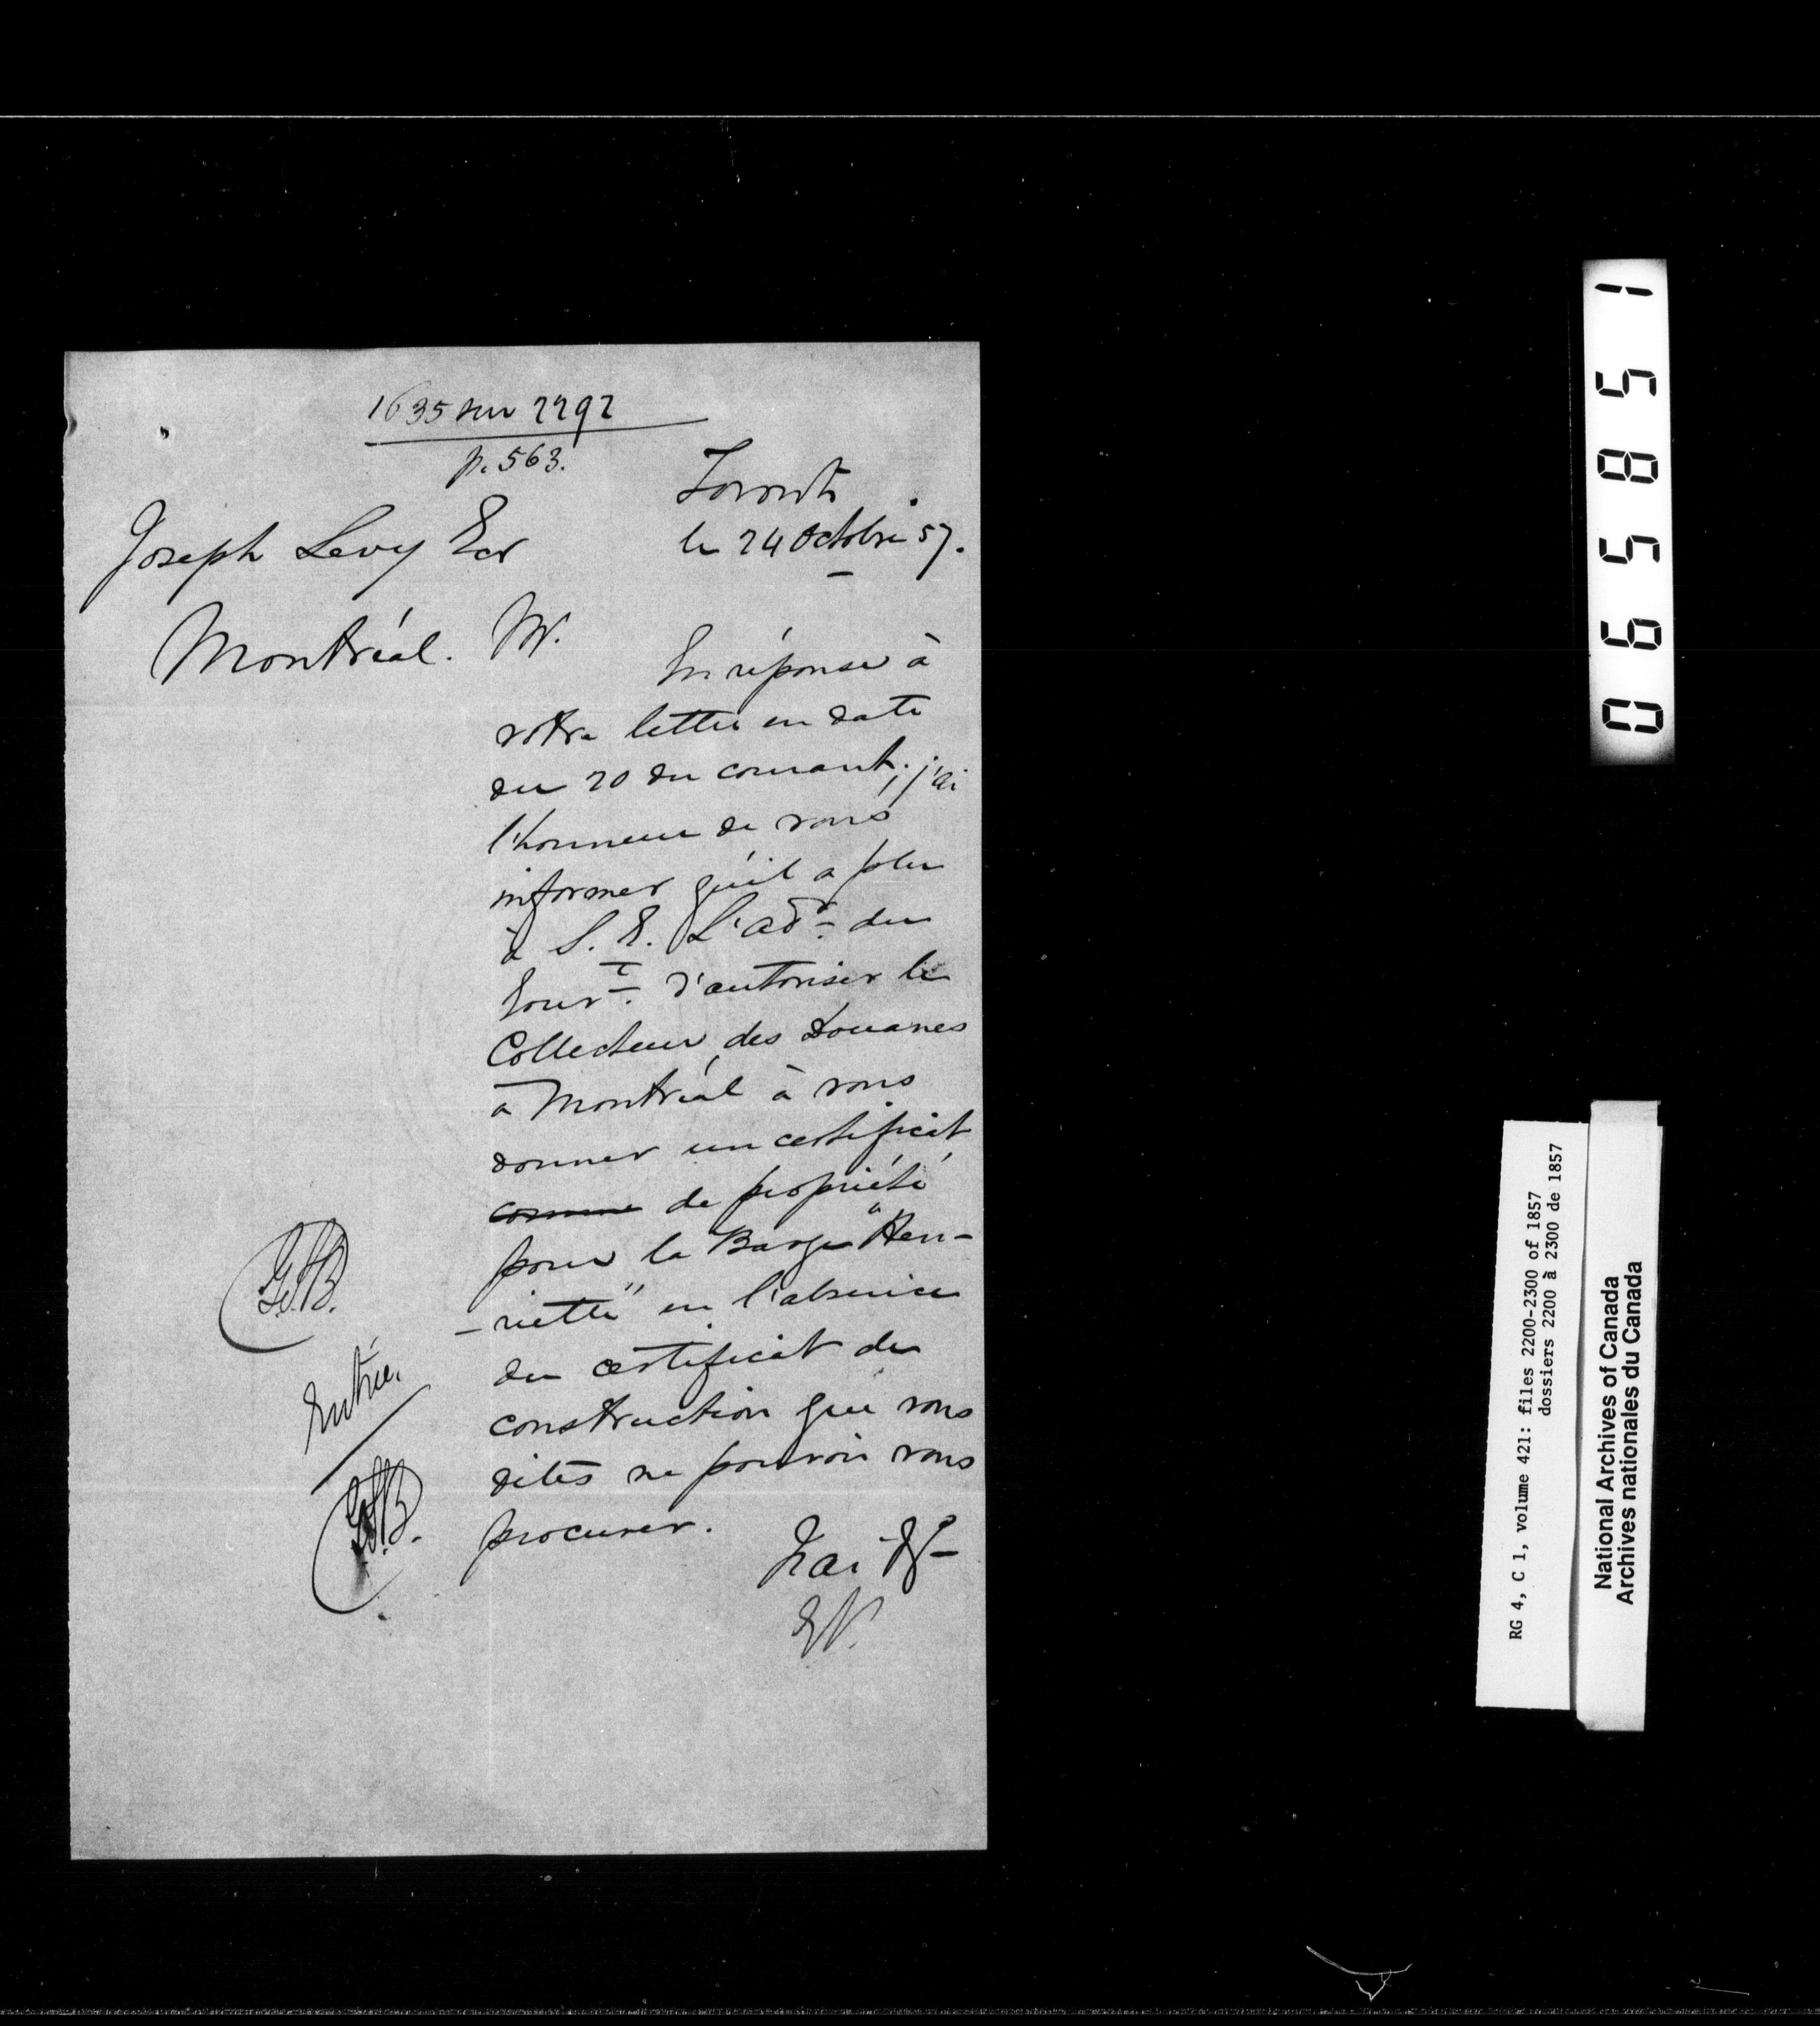 1635 sur 2292
p. 563.
Toronto
le 24 Octobre 57.
Joseph Levy Ecr
Montréal.
M.
En réponse à
votre lettre en date
du 20 du courant, j'ai
l'honneur de vous
informer qu'il a plu
à S. E. L'adr. du
Gouvt. d'autoriser le
Collecteur des Douanes
à Montréal à vous
donner un certificat
comme de propriété
pour la Barge "Hen-
-riette" en l'absence
du certificat de
construction que vous
dites ne pouvoir vous
procurer.
J'ai &
Entrée.
065851
RG 4, C 1, volume 421: files 2200-2300 of 1857
dossiers 2200 à 2300 de 1857
National Archives of Canada
Archives nationales du Canada